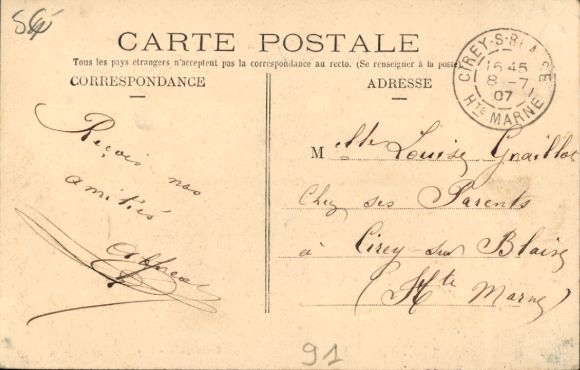 CARTE POSTALE
Tous les pays étrangers n'acceptent pas la correspondance au recto. (Se renseigner à la poste)
CORRESPONDANCE
ADRESSE
CIREY-S-BLAISE
16 45
8 -7
07
Hte MARNE
Reçois nos
amitiés
Mlle Louise Gnaillot
Chez ses Parents
à Cirey-sur Blaise
(Hte Marne)
91